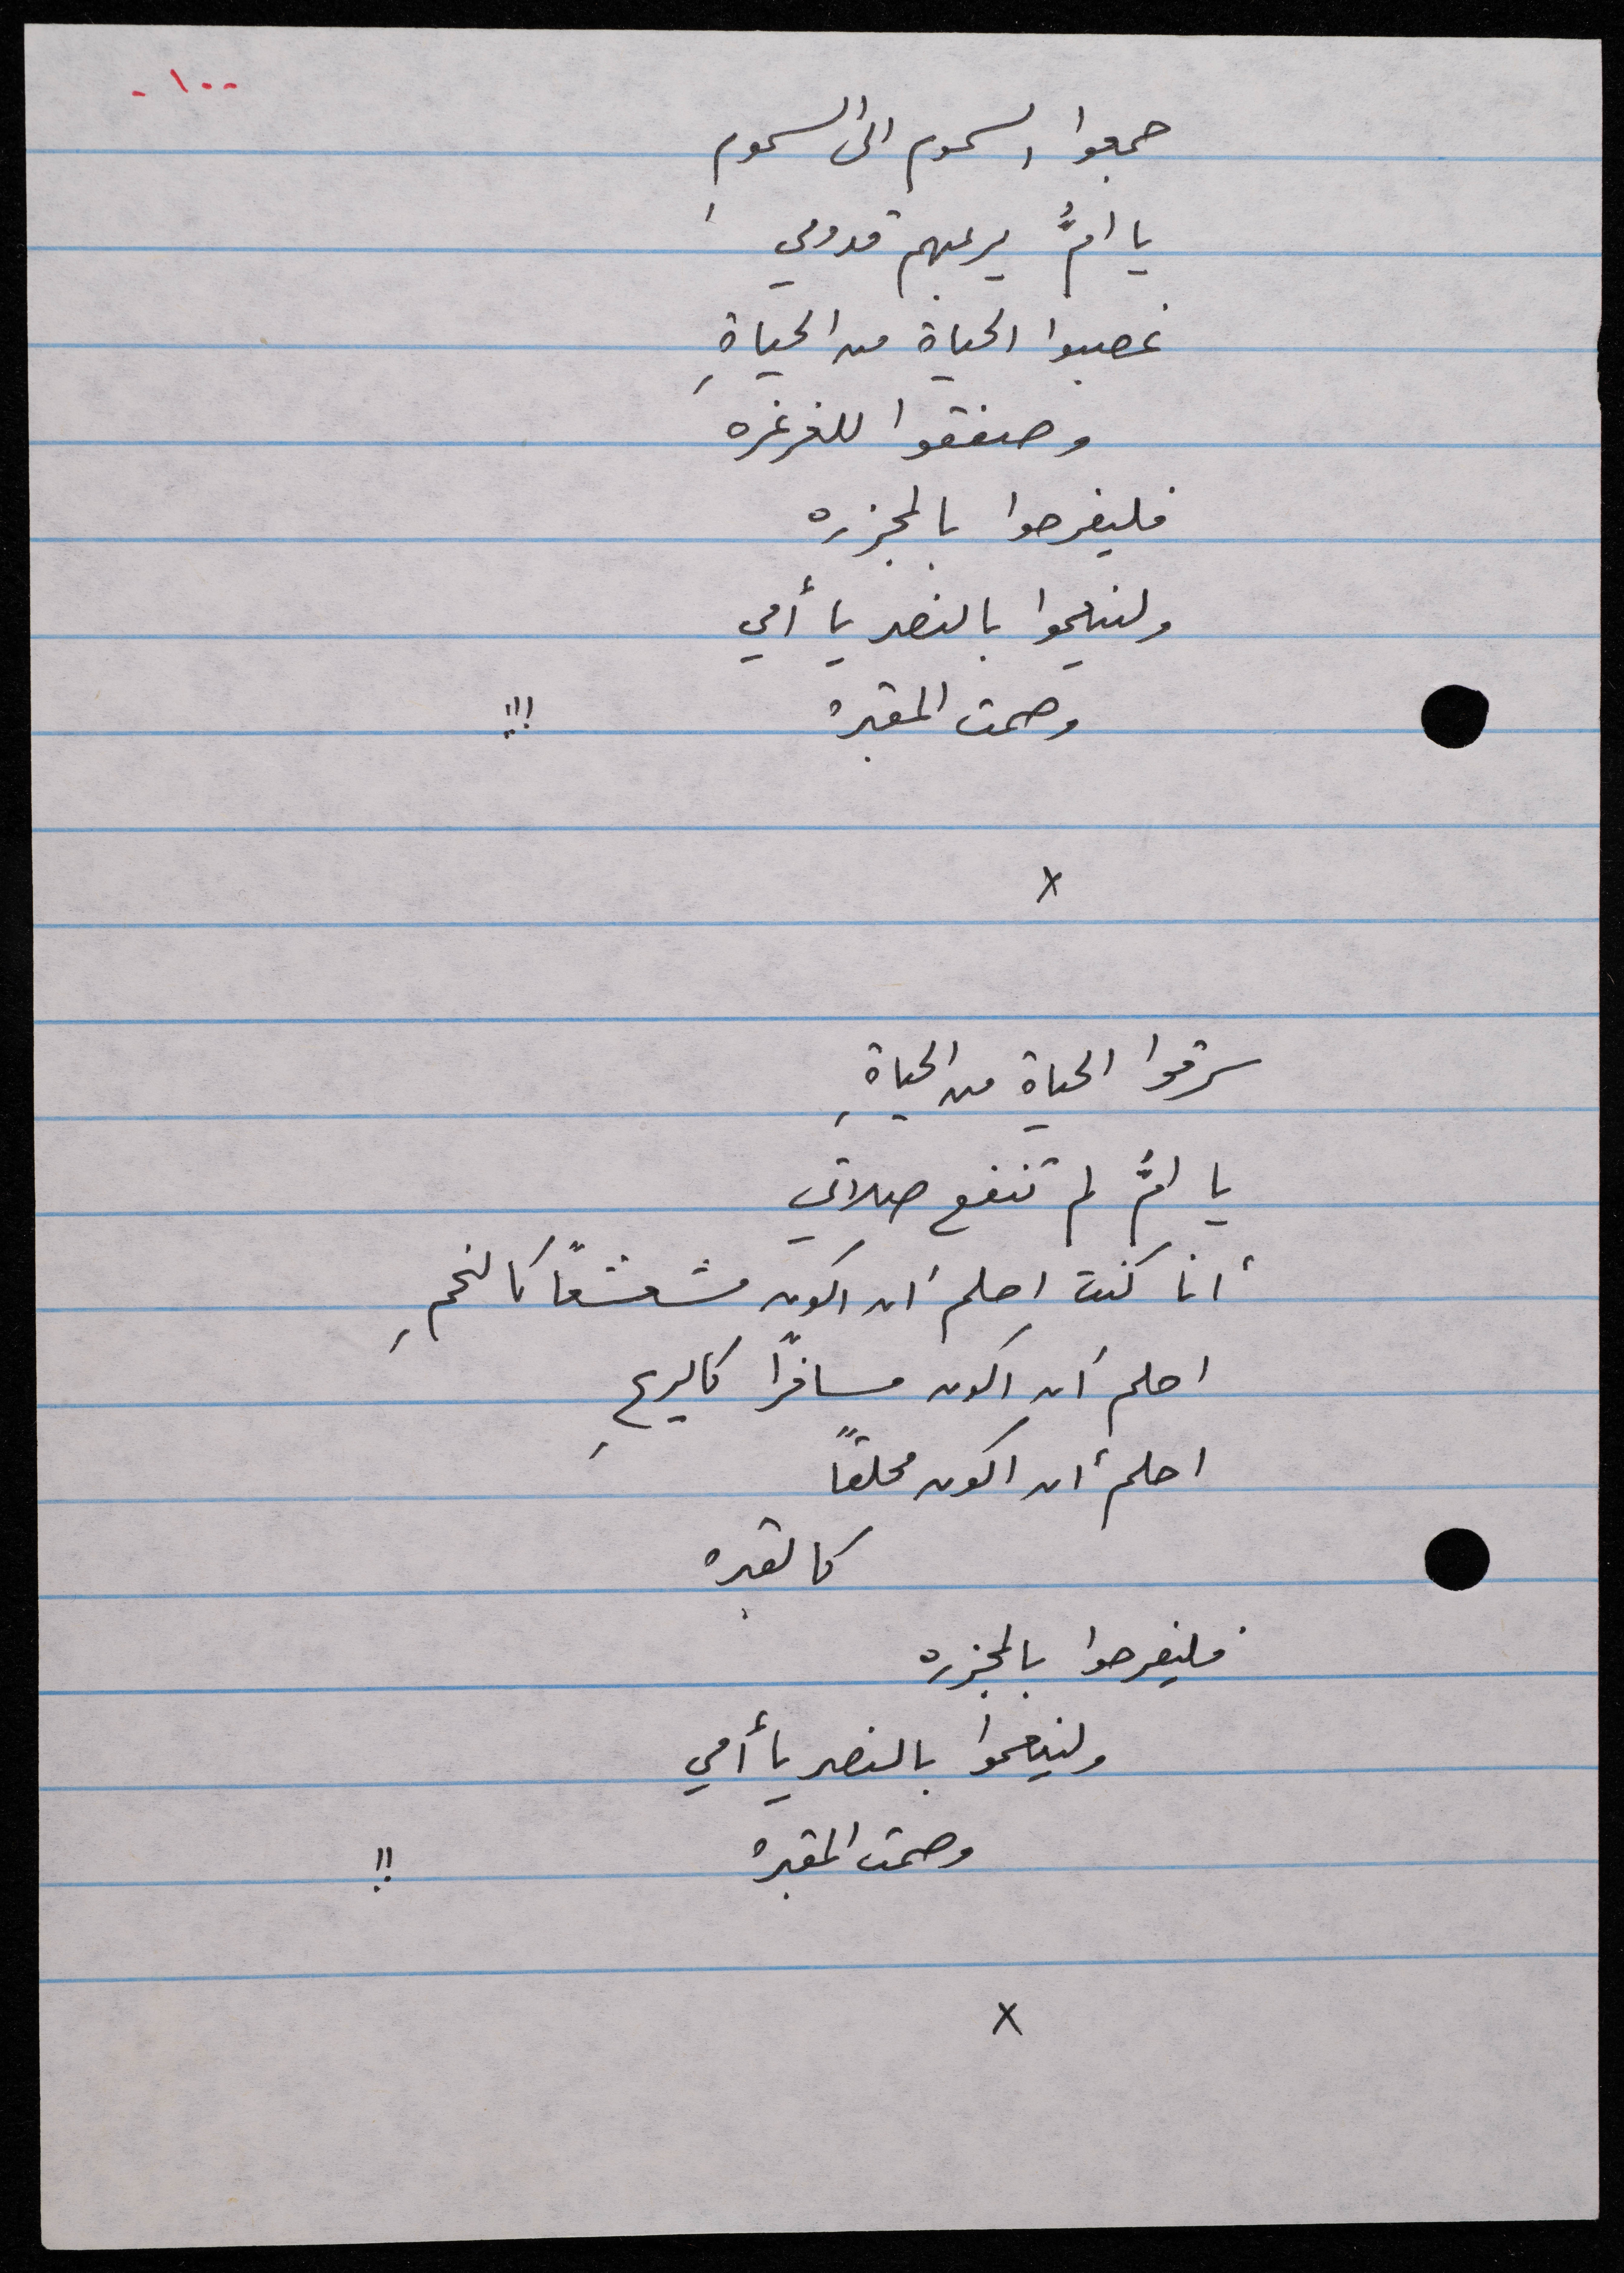 - ١٠ -
جمعوا السموم الى السمومِ
يا امُّ يرعبهم قدومي
غصبوا الحياة من الحياةِ
وصفقوا للغرغره
فليفرحوا بالمجزره
ولينعموا بالنصر يا أمي
وصمت المقبره !!!
x
سرقوا الحياة من الحياةِ
يا امُّ لم تنفع صلاتي
أنا كنت احلم أن اكون مشعشعاً كالنجمِ
احلم أن اكون مسافراً كالريحِ
احلم أن اكون محلقاً
كالقبره
فليفرحوا بالمجزره
ولينعموا بالنصر يا أمي
وصمت المقبره !!
x